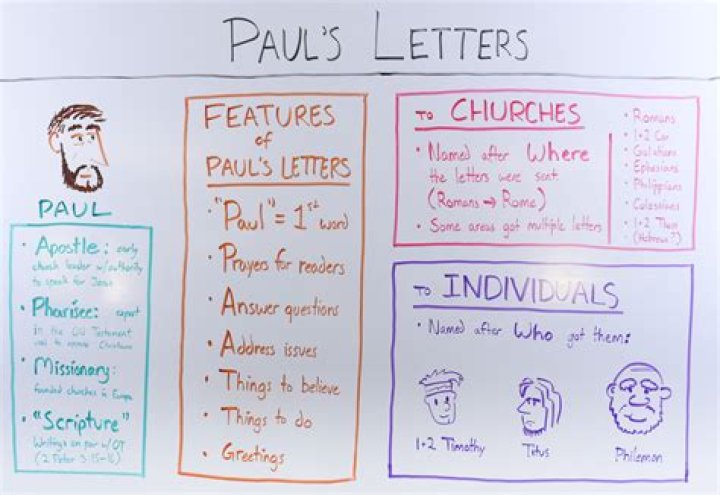 PAUL'S LETTERS
PAUL
• Apostle: early
church leader w/authority
to speak for Jesus
• Pharisee: expert
in the Old Testament
used to oppose Christians
• Missionary:
founded churches in Europe
• "Scripture"
Writings on par w/OT
(2 Peter 3:15-16)
FEATURES
of
PAUL'S LETTERS
• "Paul" = 1st word
• Prayers for readers
• Answer questions
• Address issues
• Things to believe
• Things to do
• Greetings
TO CHURCHES
• Named after Where
the letters were sent
(Romans → Rome)
• Some areas got multiple letters
• Romans
• 1+2 Cor
• Galatians
• Ephesians
• Philippians
• Colossians
• 1+2 Thess
(Hebrews?)
TO INDIVIDUALS
• Named after Who got them:
1+2 Timothy
Titus
Philemon